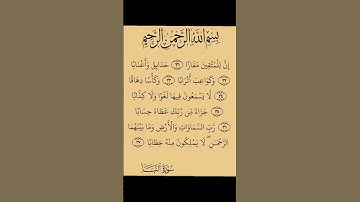 بِسْمِ اللَّهِ الرَّحْمَٰنِ الرَّحِيمِ
إِنَّ لِلْمُتَّقِينَ مَفَازًا ٣١ حَدَائِقَ وَأَعْنَابًا
٣٢ وَكَوَاعِبَ أَتْرَابًا ٣٣ وَكَأْسًا دِهَاقًا
٣٤ لَا يَسْمَعُونَ فِيهَا لَغْوًا وَلَا كِذَّابًا
٣٥ جَزَاءً مِن رَّبِّكَ عَطَاءً حِسَابًا
٣٦ رَبِّ السَّمَاوَاتِ وَالْأَرْضِ وَمَا بَيْنَهُمَا
الرَّحْمَنِ ۖ لَا يَمْلِكُونَ مِنْهُ خِطَابًا ٣٧
سُورَةُ النَّبَإِ